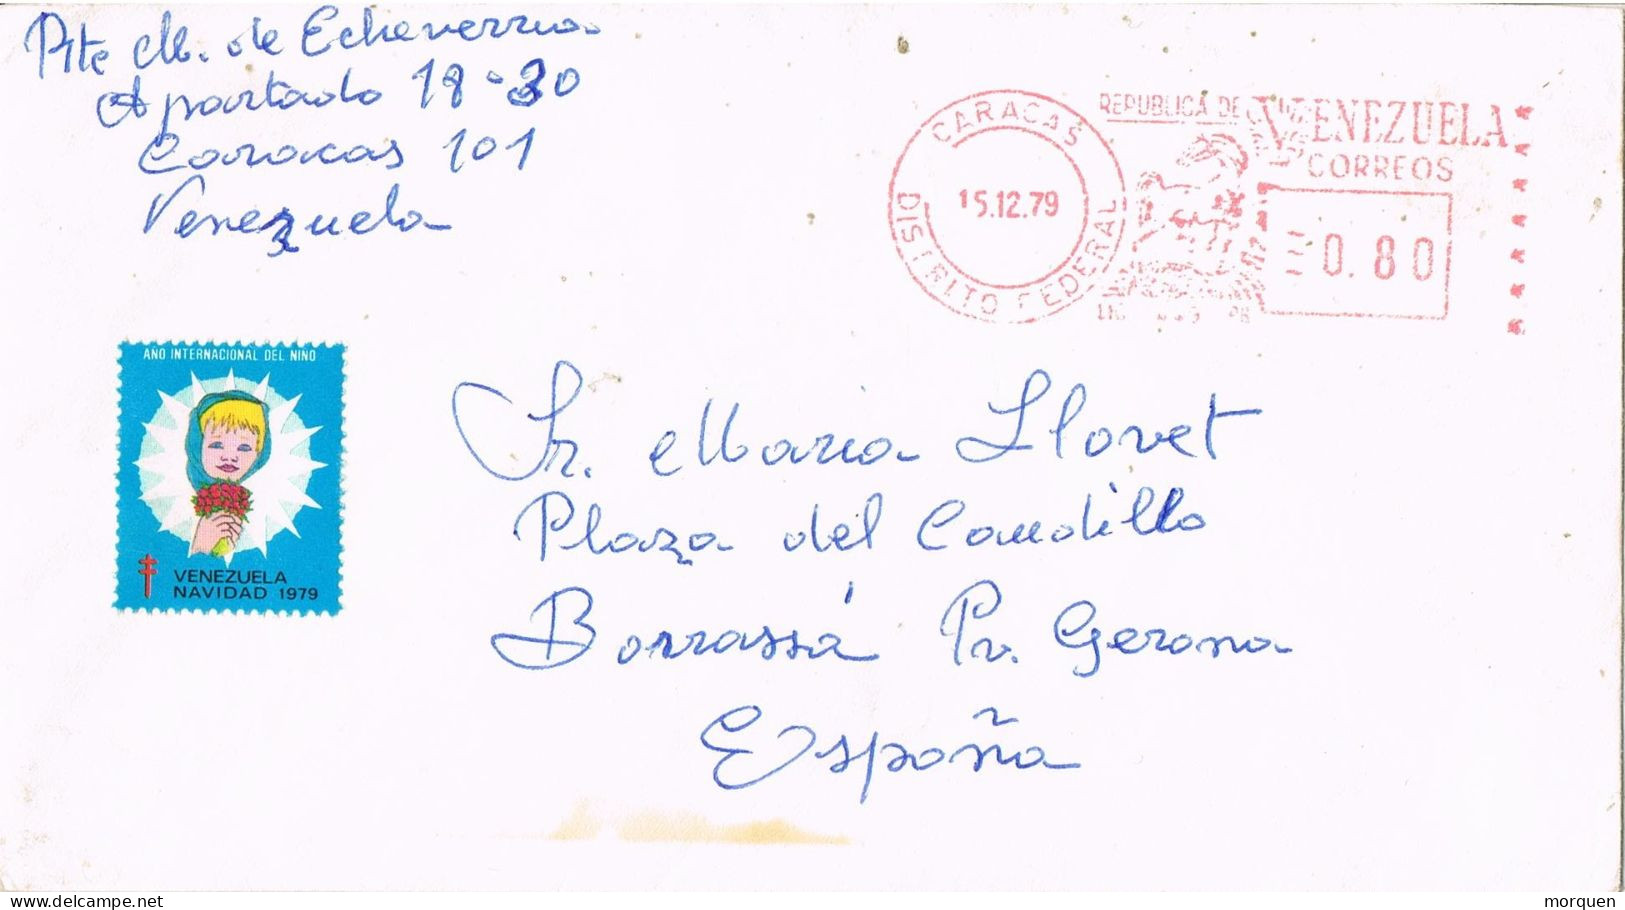 Rte M. de Echeverria
Apartado 18-30
Caracas 101
Venezuela
CARACAS
DISTRITO FEDERAL
15.12.79
REPUBLICA DE VENEZUELA
CORREOS
0.80
AÑO INTERNACIONAL DEL NIÑO
VENEZUELA
NAVIDAD 1979
Sr. Maria Llovet
Plaza del Caudillo
Borrassá Pv. Gerona
España
morquen